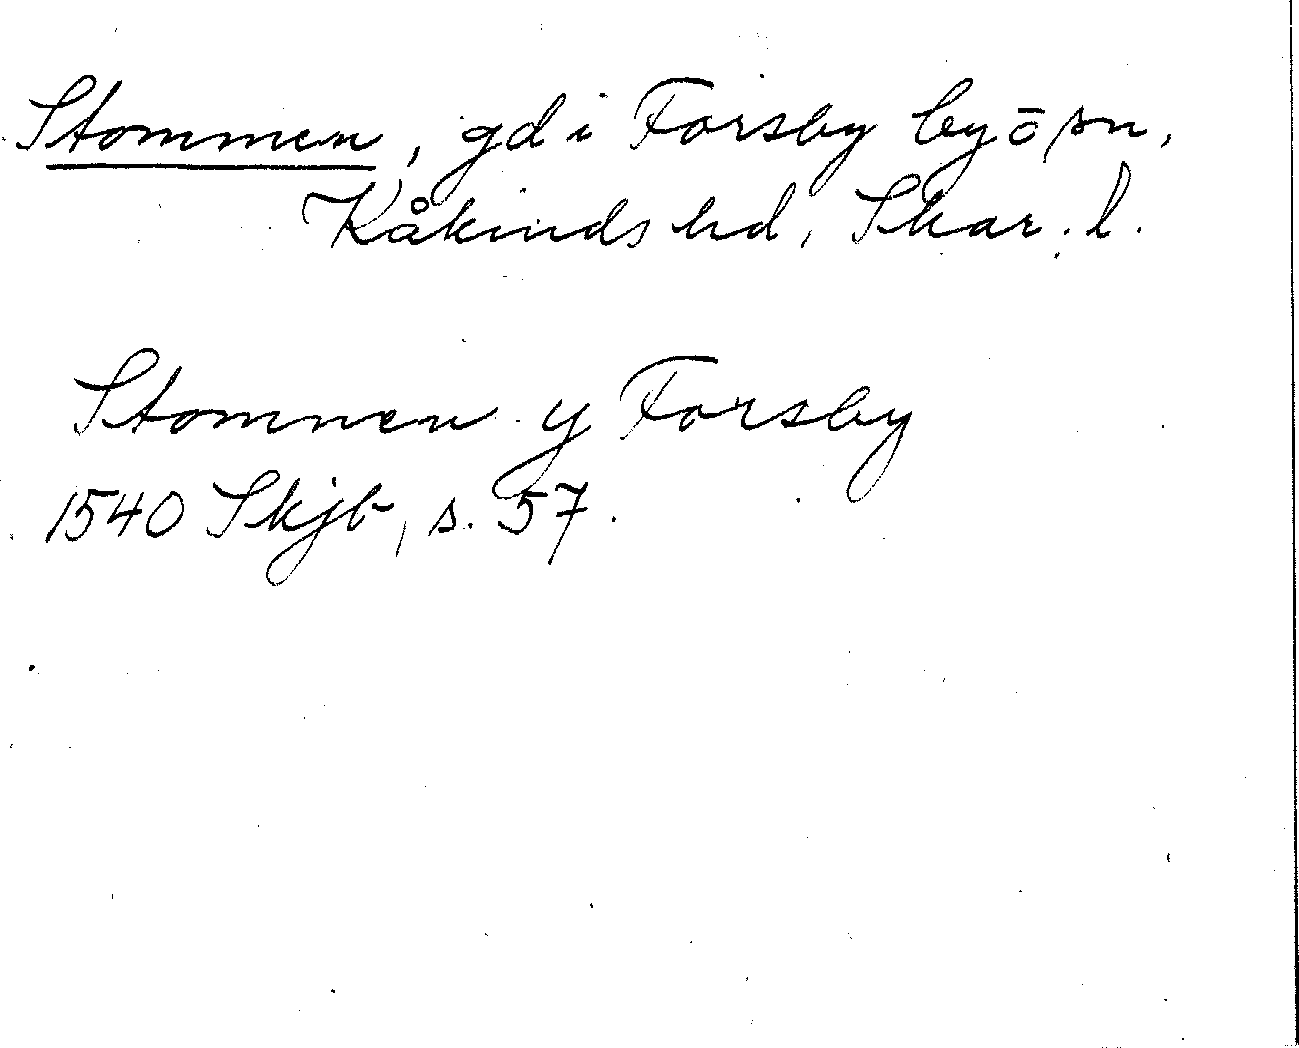 Stommen, gd i Forsby by o sn,
Kåkinds hd, Skar. l.
Stomnen y Forsby
1540 Skjb, s. 57.